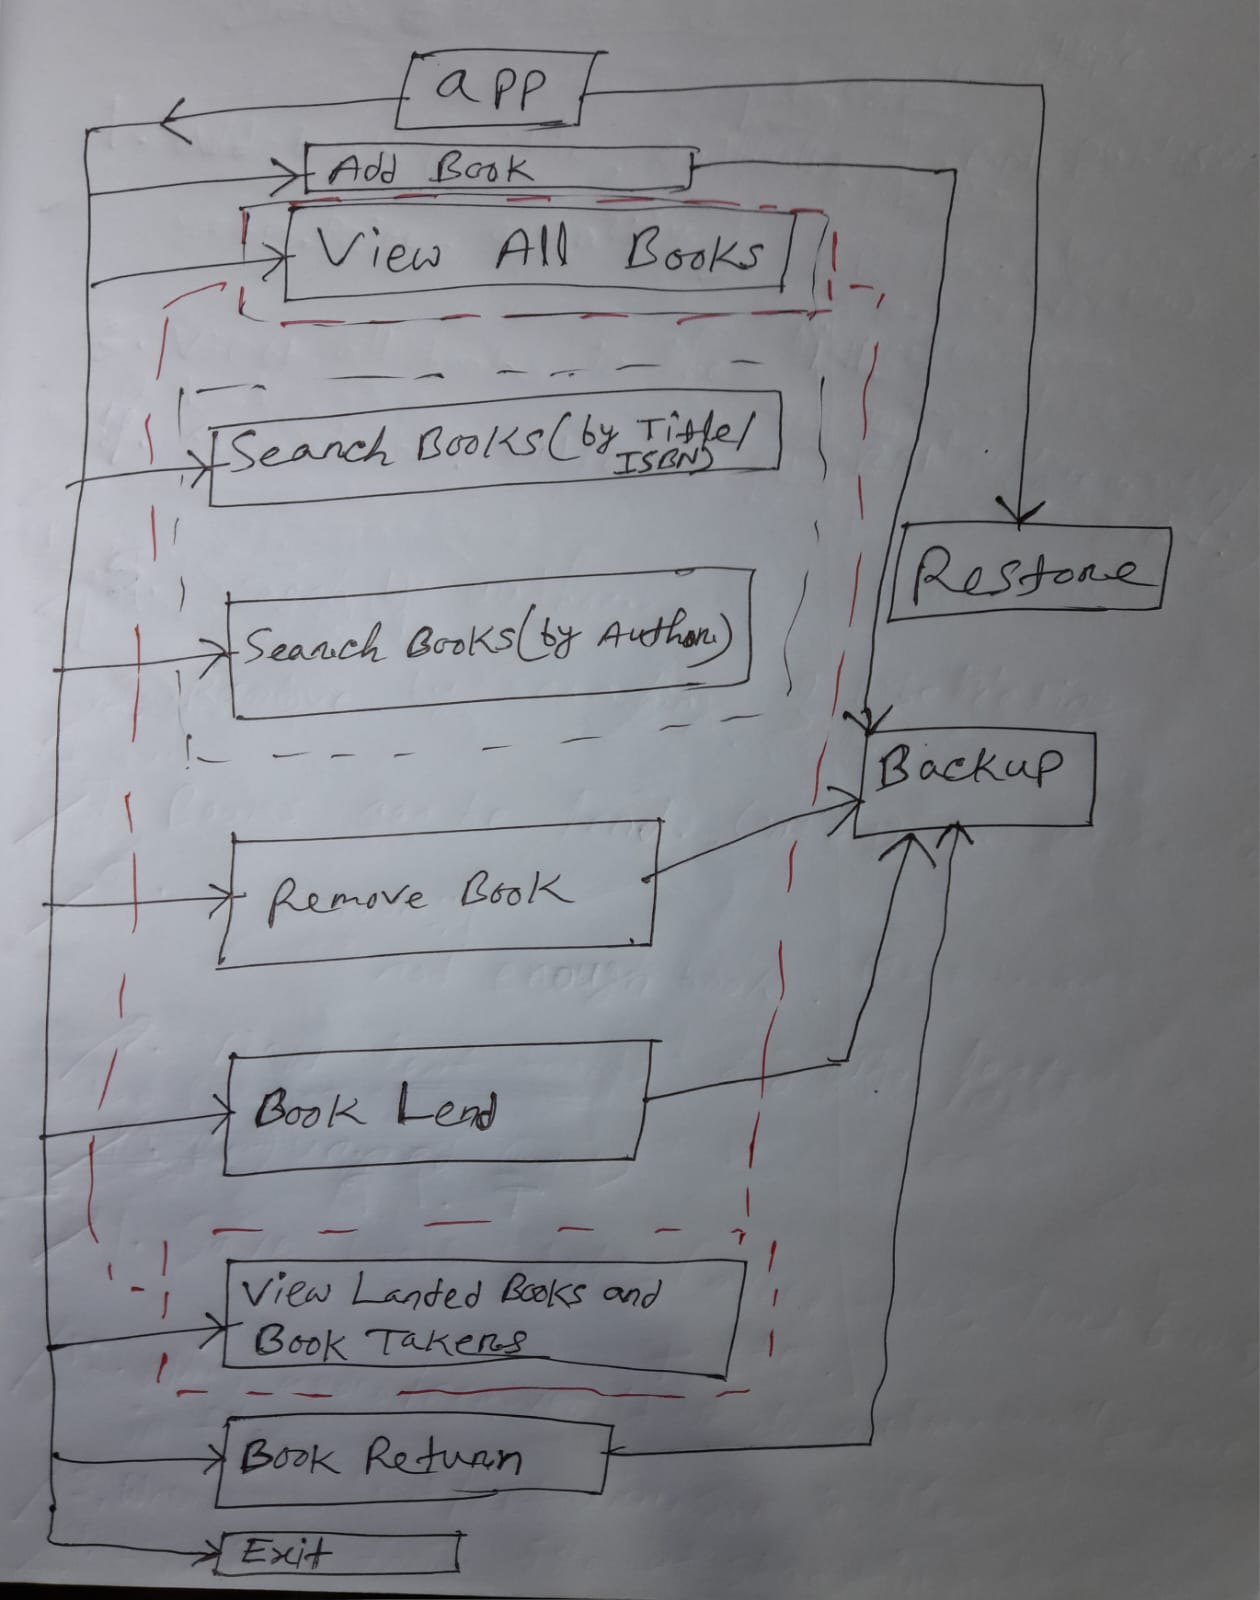 app
Add Book
View All Books
Search Books(by Title/
ISBN)
Search Books(by Author)
Restore
Backup
Remove Book
Book Lend
View Landed Books and
Book Takers
Book Return
Exit